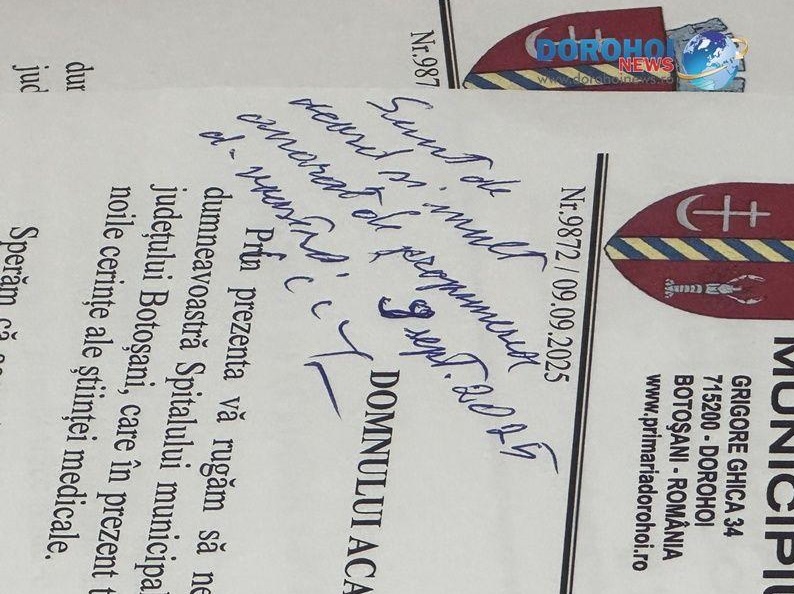 DOROHOI
NEWS
www.dorohoinews.ro
MUNICIPI
GRIGORE GHICA 34
715200 - DOROHOI
BOTOȘANI - ROMÂNIA
www.primariadorohoi.ro
Nr.9872 / 09.09.2025
Sunt de
acord și mult
onorat de propunerea
d-voastră.
9 sept. 2025
DOMNULUI ACA
Prin prezenta vă rugăm să ne
dumneavoastră Spitalului municipal
județului Botoșani, care în prezent t
noile cerințe ale științei medicale.
Sperăm că
Nr.987
dur
jud